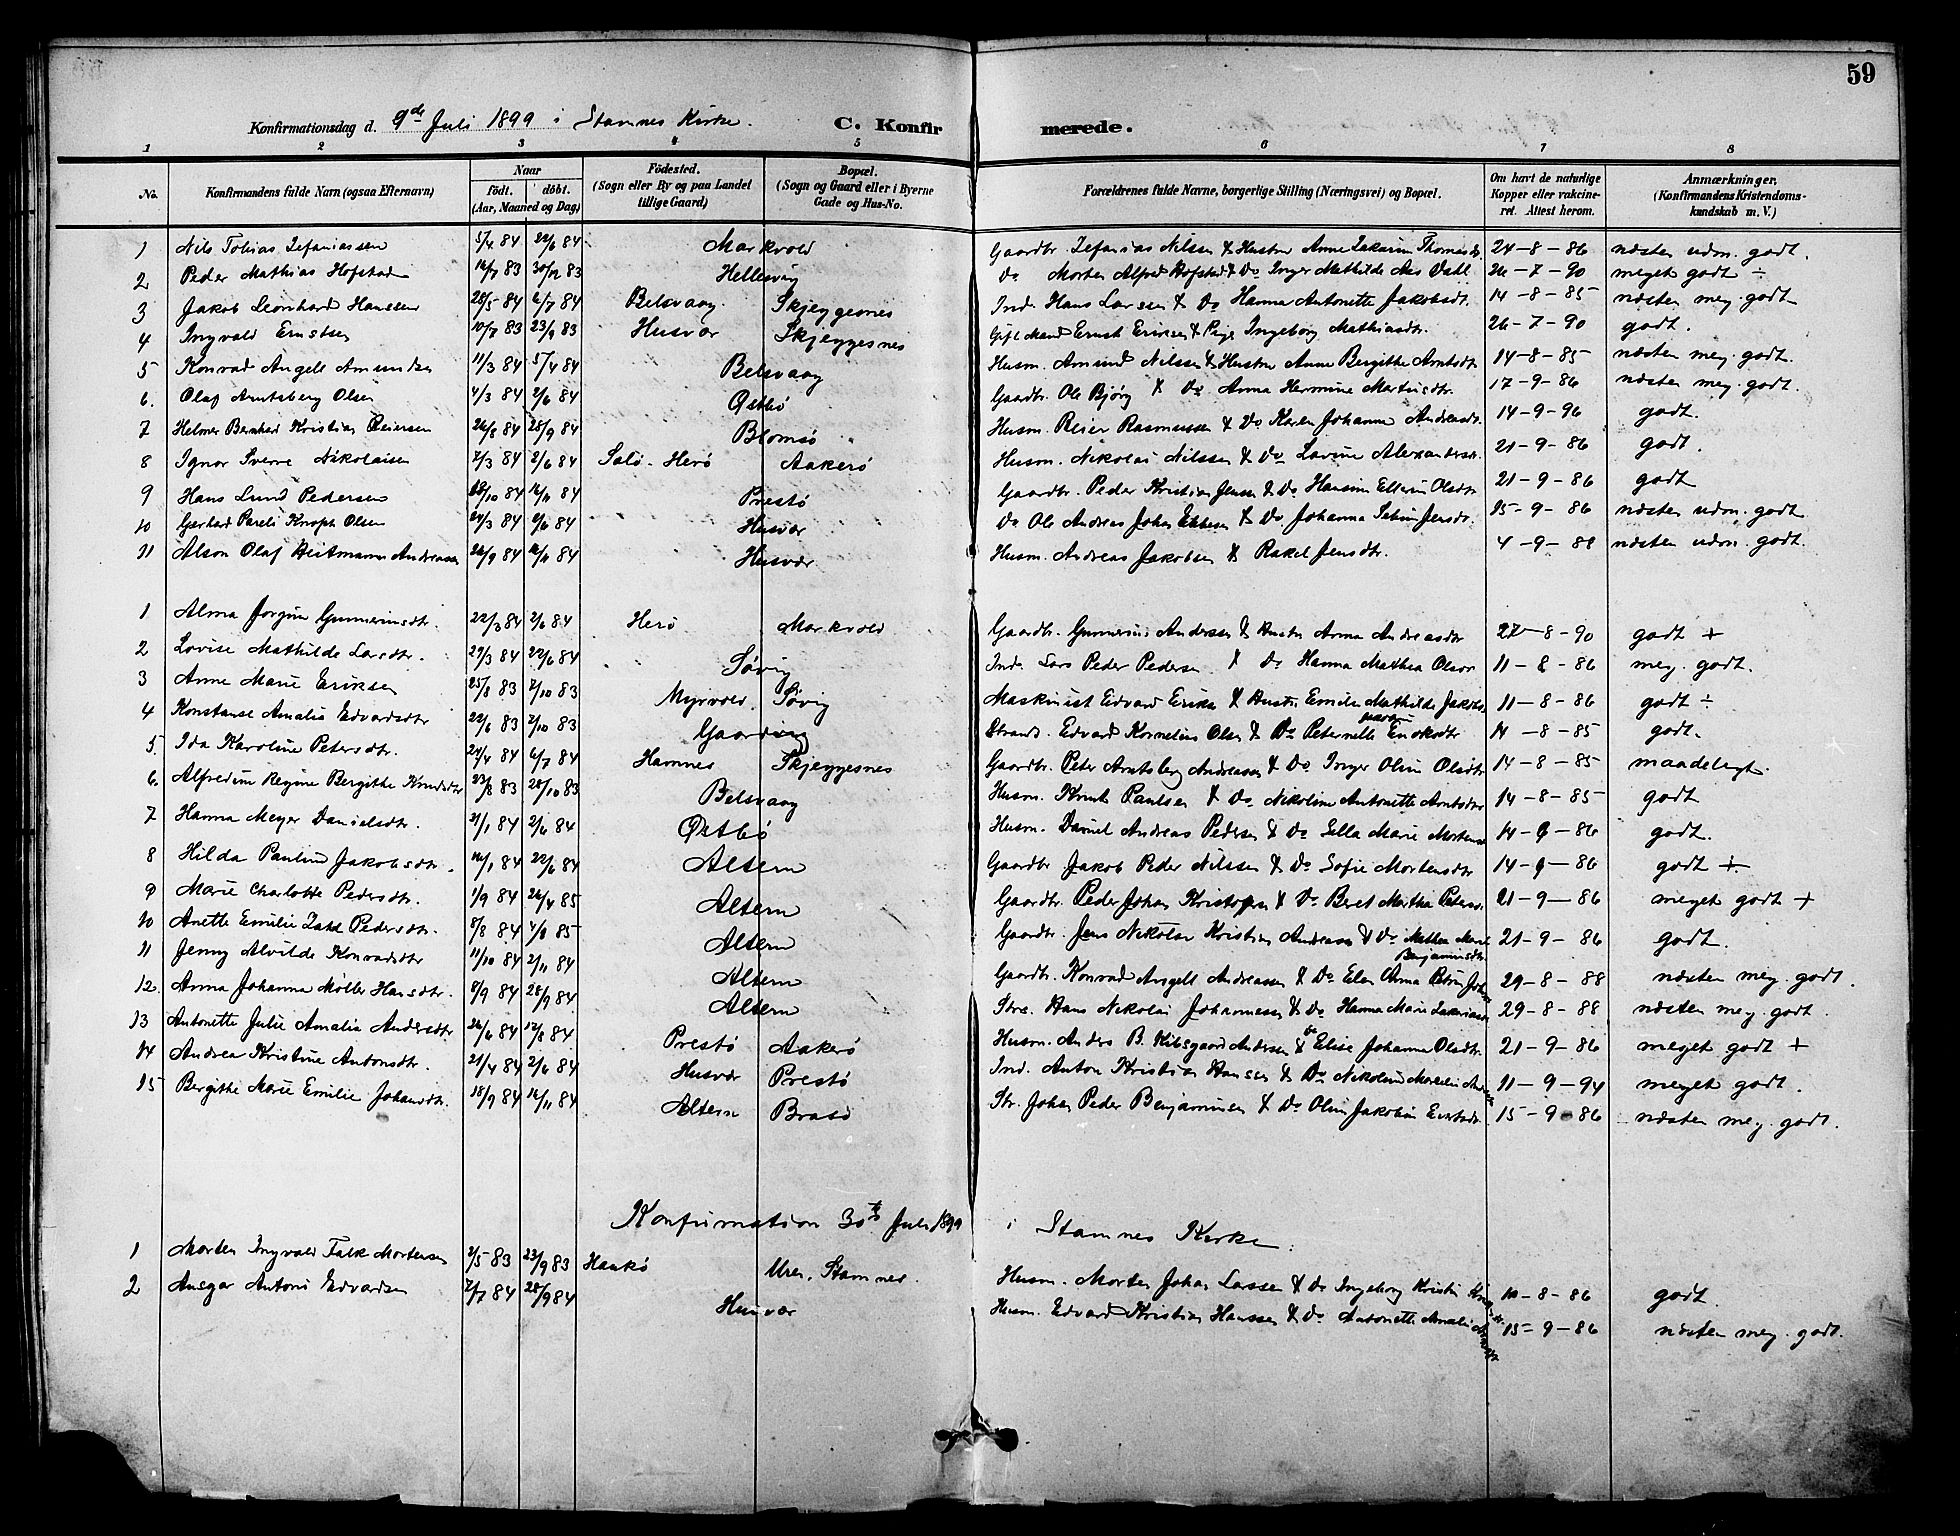 59
Konfirmationsdag d. 9de Juli 1899 i Stamnes Kirke. C. Konfirmerede.
1 2 3 4 5 6 7 8
No. Konfirmandens fulde Navn (ogsaa Efternavn) Naar födt. döbt. (Aar, Maaned og Dag) Födested. (Sogn eller By og paa Landet tillige Gaard) Bopæl. (Sogn og Gaard eller i Byerne Gade og Hus-No. Forældrenes fulde Navne, borgerlige Stilling (Næringsvei) og Bopæl. Om havt de naturlige Kopper eller vakcineret. Attest herom. Anmærkninger, (Konfirmandens Kristendomskundskab m. V.)
1 Nils Tobias Zefaniassen 5/4 84 22/6 84 Markvold Gaardbr. Zefanias Nilssen & Hustru Anne Zakarine Thomasdr. 24-8-86 næsten udm. godt.
2 Peder Mathias Hofstad 14/7 83 30/12 83 Hellesvig Do Morten Alfred Hofstad & Do Inger Mathilde Aas Dahl 26-7-90 meget godt ÷
3 Jakob Leonhard Hanssen 28/5 84 6/7 84 Belsvaag Skjeggesnes Ind. Hans Larssen & Do Hanna Antonette Jakobsdt. 14-8-85 næsten meg. godt
4 Ingvald Ernstsen 10/7 83 23/9 83 Husvær Skjeggesnes Gift Mand Ernst Eriksen & Pige Ingeborg Mathiasdtr. 26-7-90 godt.
5 Konrad Angell Amundsen 11/3 84 5/4 84 Belsvaag Husm. Amund Nilssen & Hustru Anne Bergithe Arntsdtr 14-8-85 næsten meg. godt.
6. Olaf Arntsberg Olsen 4/3 84 2/6 84 Østbø Gaardbr. Ole Bjørg & Do Anna Hermine Martinsdtr. 17-9-86 næsten meg. godt.
7 Helmer Bernhard Kristian Reiersen 26/8 84 28/9 84 Blomsø Husm. Reier Rasmussen & Do Karen Johanna Andreasdr. 14-9-96 godt.
8 Ignor Sverre Nikolaisen 7/3 84 2/6 84 Salø. Herø Aakerø Husm. Nikolai Nilssen & Do Lovine Alexandersdr. 21-9-86 godt.
9 Hans Lund Pedersen /10 84 16/11 84 Prestø Gaardbr. Peder Kristian Jensen & Do Hansine Ellevine Olsdtr 21-9-86 godt
10 Gerhard Pareli Knoph Olsen /3 84 /6 84 Husvær Do Ole Andreas Johan & Do Johanna Jensdr. 15-9-86 næsten udm. godt
11 Alson Olaf Heitmann Andreassen 26/9 84 16/11 84 Husvær Husm. Andreas Jakobsen & Rakel Jensdtr. 4-9-88 næsten udm. godt.
1 Alma Jørgine Gunnerinsdtr. 22/3 84 2/6 84 Herø Markvold Gaardbr. Gunnerius Anderssen & Hustru Anna Andreasdtr 27-8-90 godt +
2 Lovise Mathilde Larsdtr. 29/3 84 22/6 84 Søvig Ind. Lars Peder Pedersen & Do Hanna Mathea Olsdr 11-8-86 meg. godt.
3 Anne Marie Eriksen 25/8 83 7/10 83 Myrvold. Søvig Maskinist Edvard Eriksen & Hustru Emilie Mathilde Jakobs. 11-8-86 godt ÷
4 Konstanse Amalia Edvardsdtr 22/6 83 7/10 83 Gaarding Strands. Edvard Kornelius Olsen & Do Peternelle Endresdtr 14-8-85 godt.
5. Ida Karoline Petersdtr. 24/4 84 6/7 84 Hamnes Skjeggesnes Gaardbr. Peter Arntsberg Andreassen & Do Inger Oline Olsdtr 14-8-85 maadeligt.
6. Alfredine Regine Bergithe Knudsdtr 23/8 83 28/10 83 Belsvaag Husm. Knut Paulsen & Do Nikoline Antonette Arntsdtr 14-8-85 godt
7 Hanna Meyer Danielsdtr. 21/1 84 2/6 84 Østbø Husm. Daniel Andreas Pedersen & Do Sella Marie Mortensd 14-9-86 godt.
8 Hilda Pauline Jakobsdtr. 16/1 84 22/6 84 Altern Gaardbr Jakob Peder Nilssen & Do Sofie Mortensdtr 14-9-86 godt +
9 Marie Charlotte Pedersdtr. 1/9 84 26/4 85 Altern Gaardbr. Peder Johan Kristofersen & Do Beret Martha Petersd. 21-9-86 meget godt +
10 Anette Emilie Pedersdtr. 8/8 84 4/8 85 Altern Gaardbr. Jens Nikolai Kristian Andreassen & Do Mathea Marie Benjaminsdtr 21-9-86 godt.
11 Jenny Alvilde Konradsdtr 11/10 84 2/11 84 Altern Gaardbr. Konrad Angell Andreassen & Do Elen Anna Petrine 29-8-88 næsten meg. godt.
12. Anna Johanna Møller Hansdtr. 8/9 84 28/9 84 Altern Strs. Hans Nikolai Johannessen & Do Hanna Marie Zakariasd 29-8-88 næsten meg. godt.
13 Antonette Julie Amalia Andersdtr 26/6 84 17/8 84 Prestø Aakerø Husm. Anders B. Kibsgaard Andersen & Do Elise Johanna Olsdtr. 21-9-86 meget godt +
14 Andrea Kristine Antonsdtr. 21/4 84 2/6 84 Husvær Prestø Ind. Anton Kristian Hanssen & Do Nikoline 11-9-94 meget godt.
15 Bergithe Marie Emilie Johansdtr. 18/9 84 16/11 84 Altern Brasø Str. Johan Peder Benjaminsen & Do Oline Jakobine 15-9-86 næsten meg. godt.
Konfirmation 30te Juli 1899 i Stamnes Kirke.
1 Morten Ingvald Falk Mortensen 2/5 83 23/9 83 Haukø Uren, Stamnes. Husm. Morten Johan Larssen & Do Ingeborg Kristine 10-8-86 godt.
2 Ansgar Antoni Edvardsen 7/7 84 28/9 84 Husvær Husm. Edvard Kristian Hanssen & Do Antonette Amalie 15-9-86 næsten meg. godt.